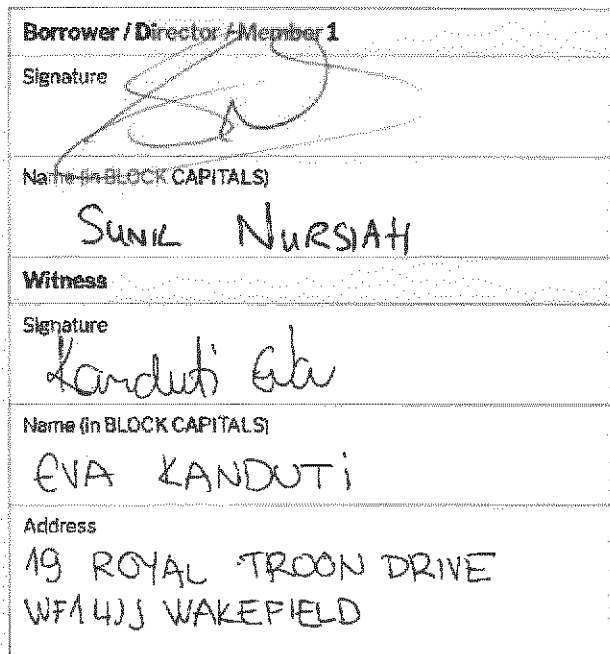 Borrower / Director / Member 1
Signature
Name (in BLOCK CAPITALS)
SUNIL NURSIAH
Witness
Signature
Kanduti Eva
Name (in BLOCK CAPITALS)
EVA KANDUTI
Address
19 ROYAL TROON DRIVE
WF1 4JJ WAKEFIELD